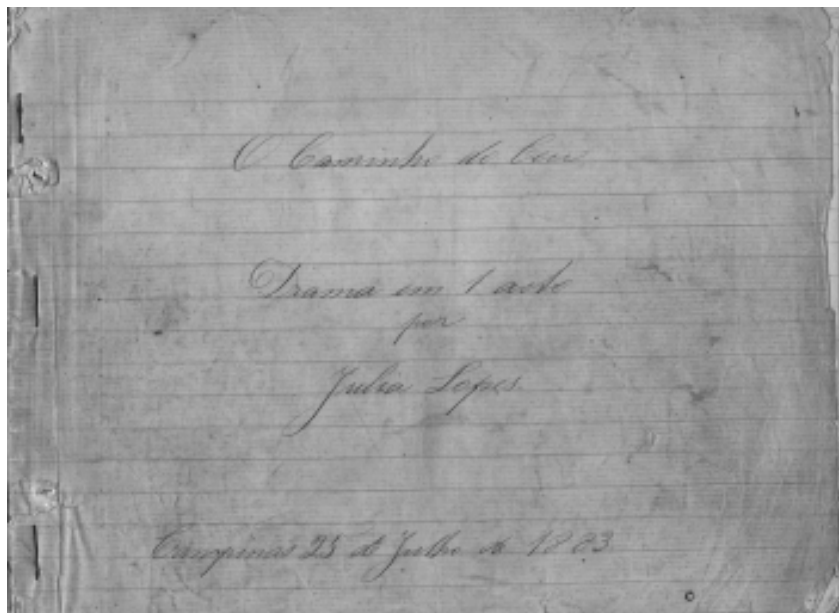 O Caminho do Ceu
Drama em 1 acto
por
Julia Lopes.
Campinas 25 de Julho de 1883